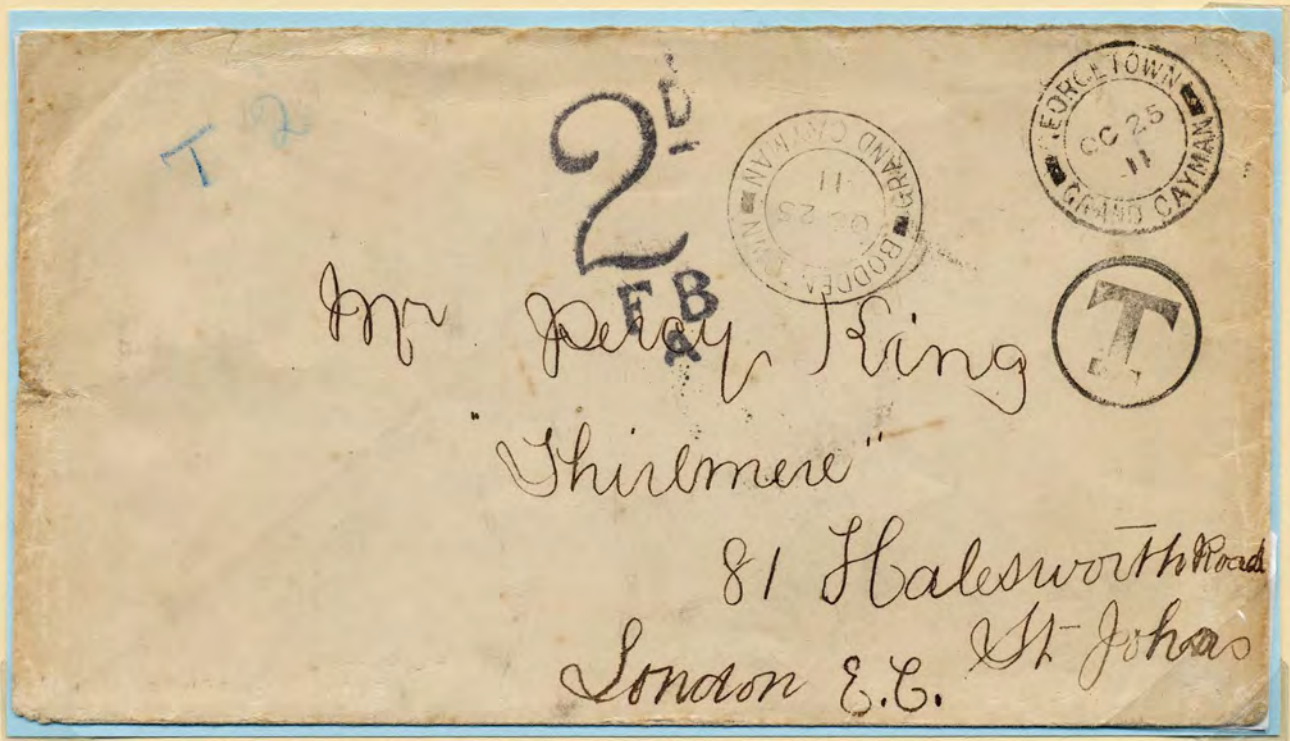 T 2
2D
F B
A
BODDEN TOWN
GRAND CAYMAN
OC 25
11
GEORGETOWN
GRAND CAYMAN
OC 25
11
T
Mr Percy King
"Thirlmere"
81 Halesworth Road
St Johns
London E.C.